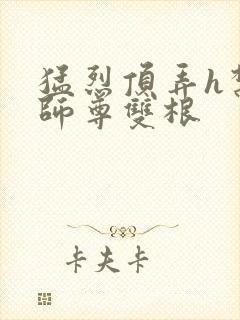 猛烈頂弄h
師尊雙根
卡夫卡